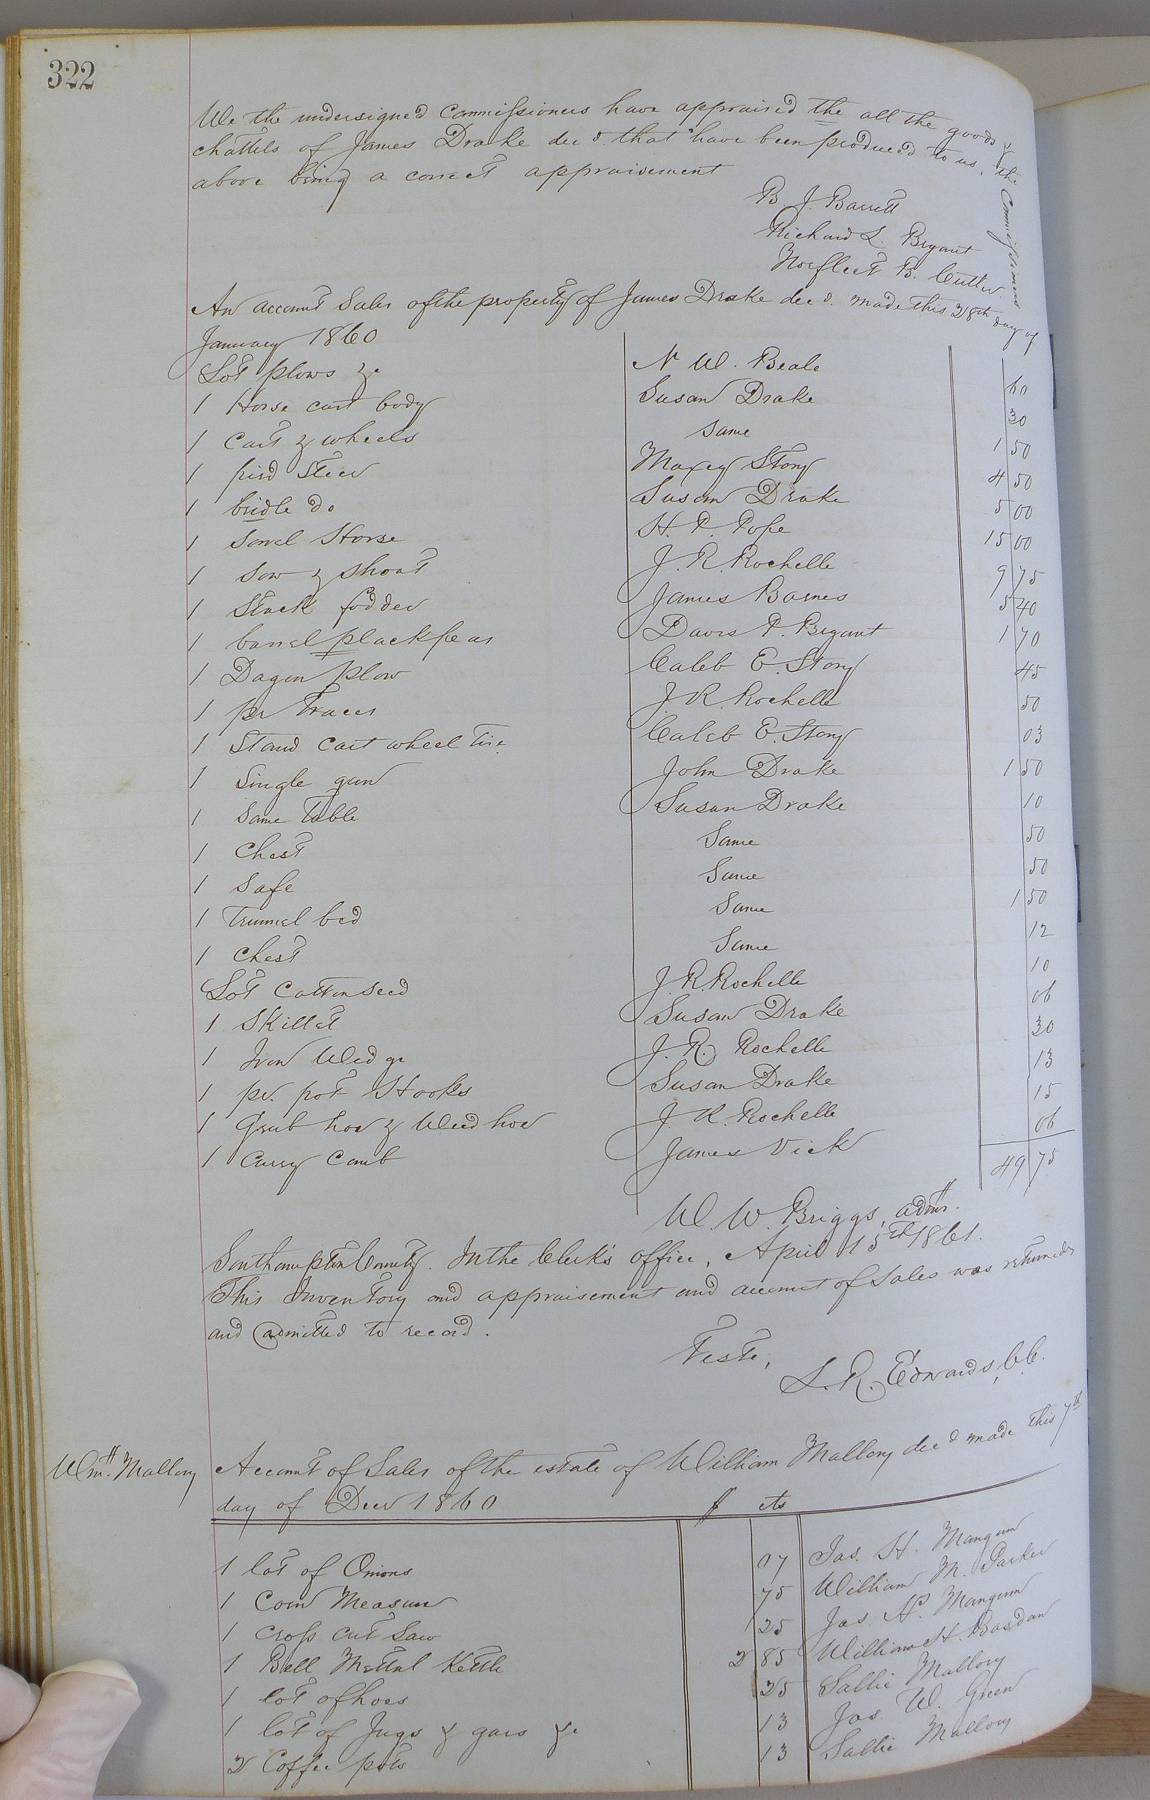 322
We the undersigned Commissioners have appraised the all the goods &
chattels of James Drake decd. that have been produced to us, the
above being a correct appraisement
B. J. Barrett
Richard L. Bryant
Norfleet B. Cutler
Commissioners
An account Sales of the property of James Drake decd. made this 28th day of
January 1860
Lot plows &c N W. Beale 60
1 Horse cart body Susan Drake 30
1 Cart & wheels Same 1 50
1 pied Steer Maxey Story 4 50
1 bridle do Susan Drake 5 00
1 Sorrel Horse H. P. Pope 15 00
1 Sow & Shoat J. R. Rochelle 9 75
1 Stack fodder James Barnes 5 40
1 barrel plackpeas Davis P. Bryant 1 70
1 Dagon plow Caleb E. Story 45
1 pr Traces J. R. Rochelle 50
1 Stand Cart wheel Tire Caleb E. Story 03
1 Single gun John Drake 1 50
1 Same Table Susan Drake 10
1 Chest Same 50
1 Safe Same 50
1 Trummel bed Same 1 50
1 Chest Same 12
Lot Cotton seed J. R. Rochelle 10
1 Skillet Susan Drake 06
1 Iron Wedge J. R. Rochelle 30
1 pr. pot Hooks Susan Drake 13
1 Grub hoe & Weed hoe J. R. Rochelle 15
1 Curry Comb James Vick 06
49 75
W. W. Briggs, admr.
Southampton County. In the Clerk's office, April 15th 1861.
This Inventory and appraisement and account of Sales was returned
and admitted to record.
Teste,
L. R. Edwards, CC.
Wm. Mallory
Account of Sales of the estate of William Mallory decd made this 7th
day of Decr 1860 $ cts
1 lot of Onions 07 Jas. H. Mangum
1 Corn Measure 75 William M. Parker
1 Cross cut Saw 25 Jas. H. Mangum
1 Bell Mettal Kettle 2 85 William H. Barden
1 lot of hoes 25 Sallie Mallory
1 lot of Jugs & gars &c 13 Jas. W. Green
2 Coffee pots 13 Sallie Mallory